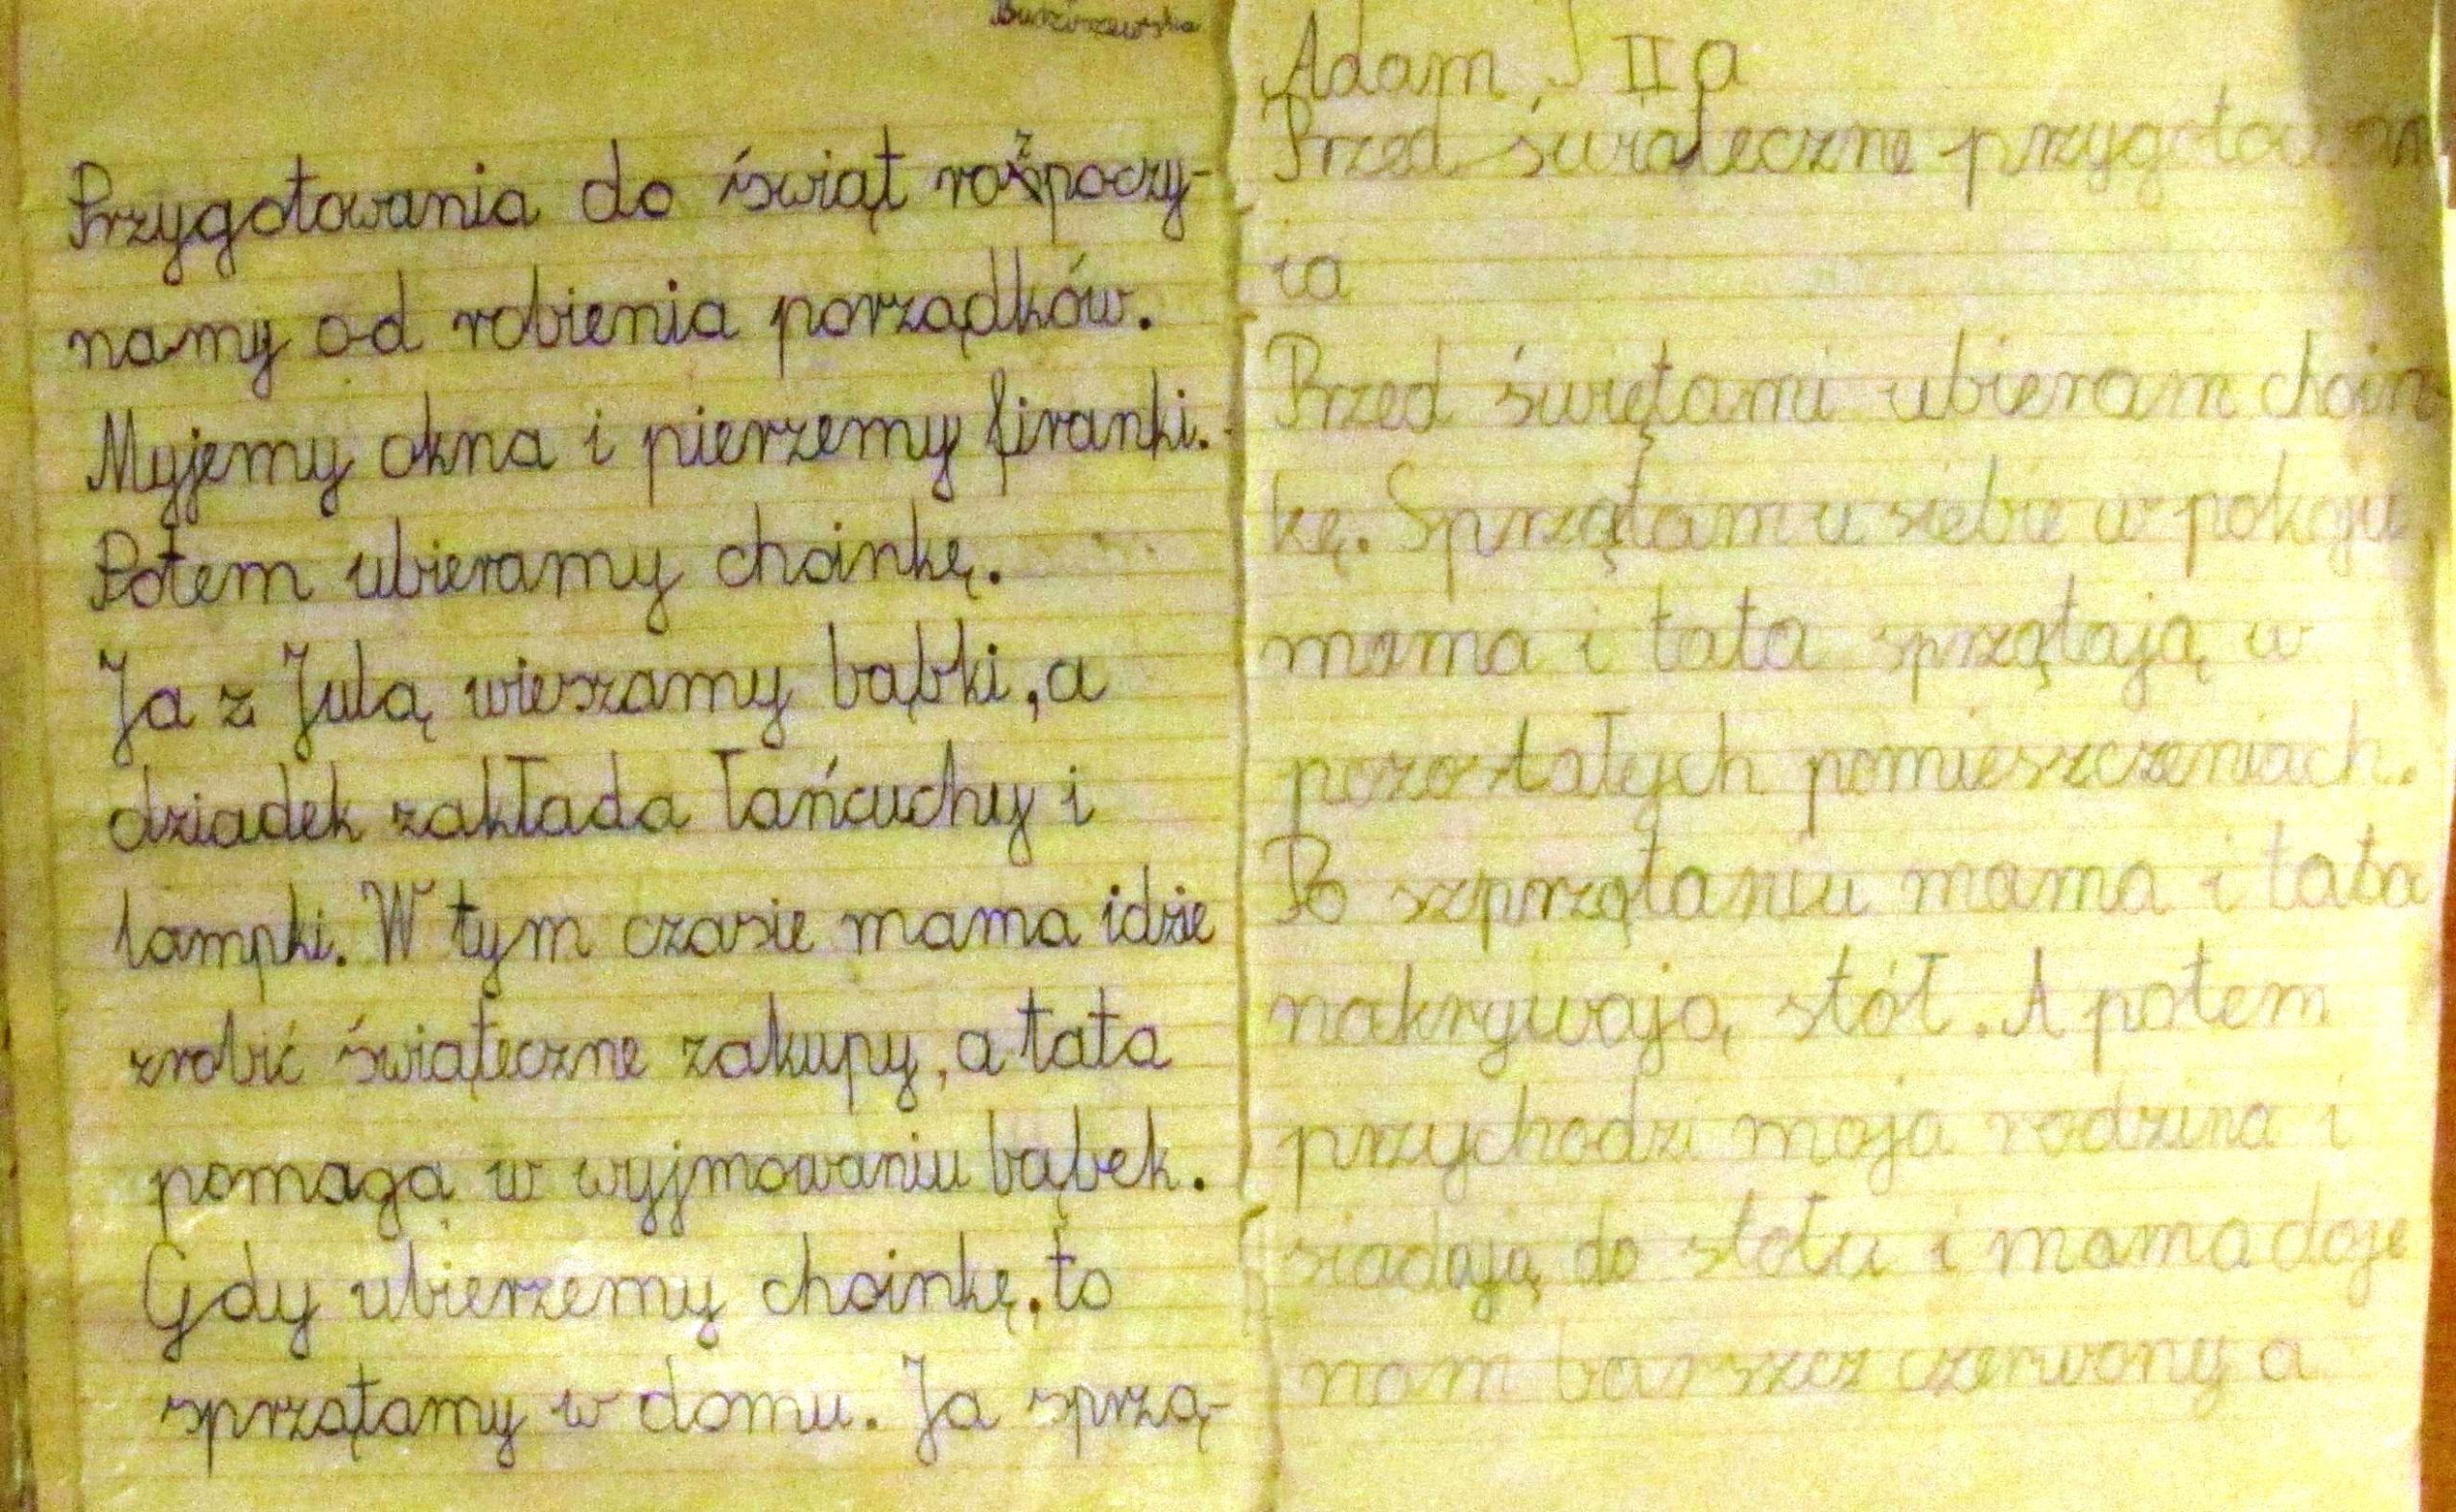 Budziszewska
Przygotowania do świąt rozpoczy-
namy od robienia porządków.
Myjemy okna i pierzemy firanki.
Potem ubieramy choinkę.
Ja z Julą wieszamy bąbki, a
dziadek zakłada łańcuchy i
lampki. W tym czasie mama idzie
zrobić świąteczne zakupy, a tata
pomaga w wyjmowaniu bąbek.
Gdy ubierzemy choinkę, to
sprzątamy w domu. Ja sprzą-
Adam J IIa
Przed świąteczne przygotowan
ia
Przed świętami ubieram choin
kę. Sprzątam u siebie w pokoju
mama i tata sprzątają w
pozostałych pomieszczeniach.
Po szprzątaniu mama i tata
nakrywają stół. A potem
przychodzi moja rodzina i
siadają do stołu i mama daje
nam barszcz czerwony a